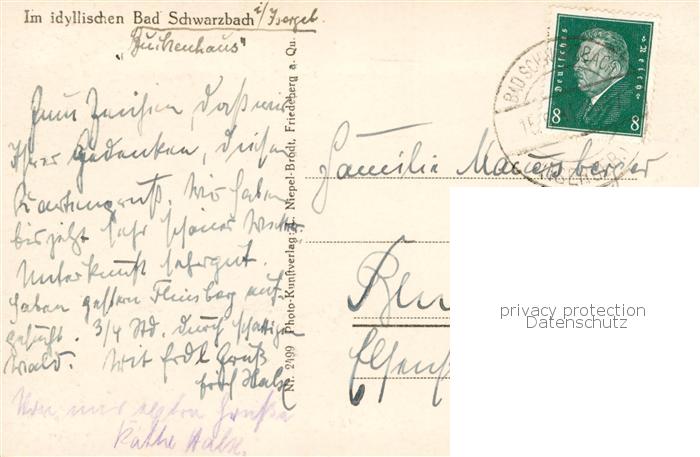 Im idyllischen Bad Schwarzbach i/Isergeb.
"Buchenhaus"
Zum Zeichen, daß wir
Ihrer gedenken, diesen
Kartengruß. Wir haben
bis jetzt sehr schönes Wetter
Unterkunft sehr gut.
Haben gestern Flinsberg auf-
gesucht. 3/4 Std. durch schattigen
Wald. Mit frdl Gruß
Von uns
Grüße
Käthe
Nr. 2499 Photo-Kunstverlag: A. Niepel-Brodt, Friedeberg a. Qu.
Deutsches Reich
8 8
BAD SCHWARZBACH
Familie Mauersberger
privacy protection
Datenschutz